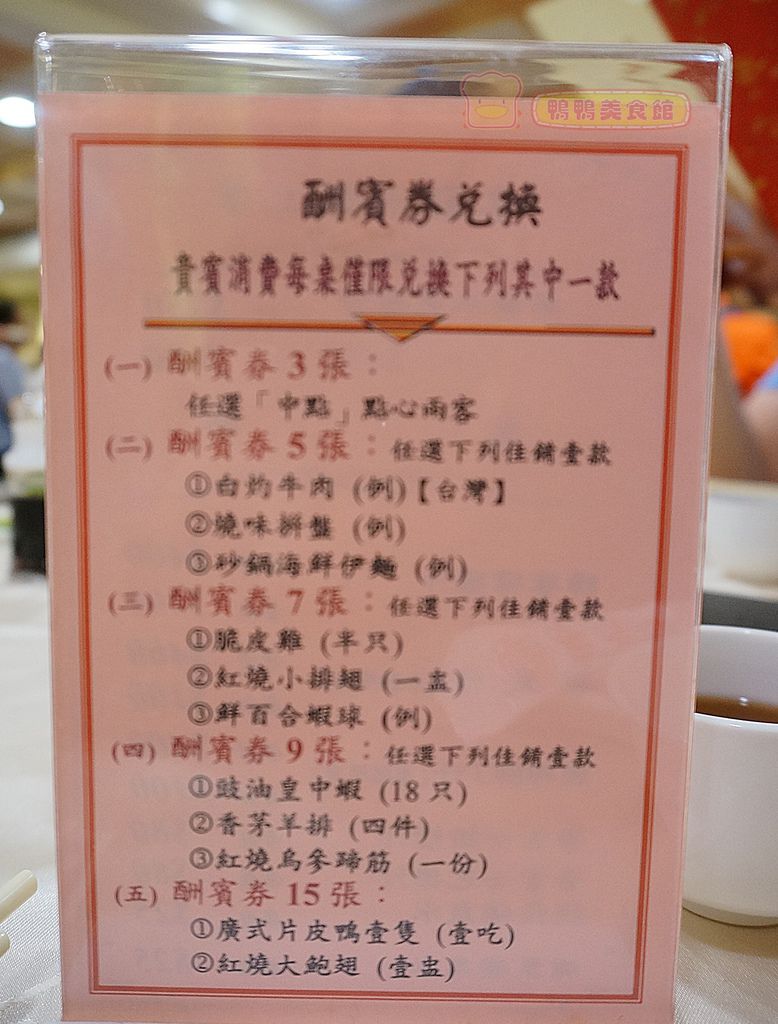 鴨鴨美食館
酬賓券兌換
貴賓消費每桌僅限兌換下列其中一款
(一) 酬賓券 3 張：
任選「中點」點心兩客
(二) 酬賓券 5 張：任選下列佳餚壹款
①白灼牛肉 (例)【台灣】
②燒味拼盤 (例)
③砂鍋海鮮伊麵 (例)
(三) 酬賓券 7 張：任選下列佳餚壹款
①脆皮雞 (半只)
②紅燒小排翅 (一盅)
③鮮百合蝦球 (例)
(四) 酬賓券 9 張：任選下列佳餚壹款
①豉油皇中蝦 (18 只)
②香茅羊排 (四件)
③紅燒烏參蹄筋 (一份)
(五) 酬賓券 15 張：
①廣式片皮鴨壹隻 (壹吃)
②紅燒大鮑翅 (壹盅)